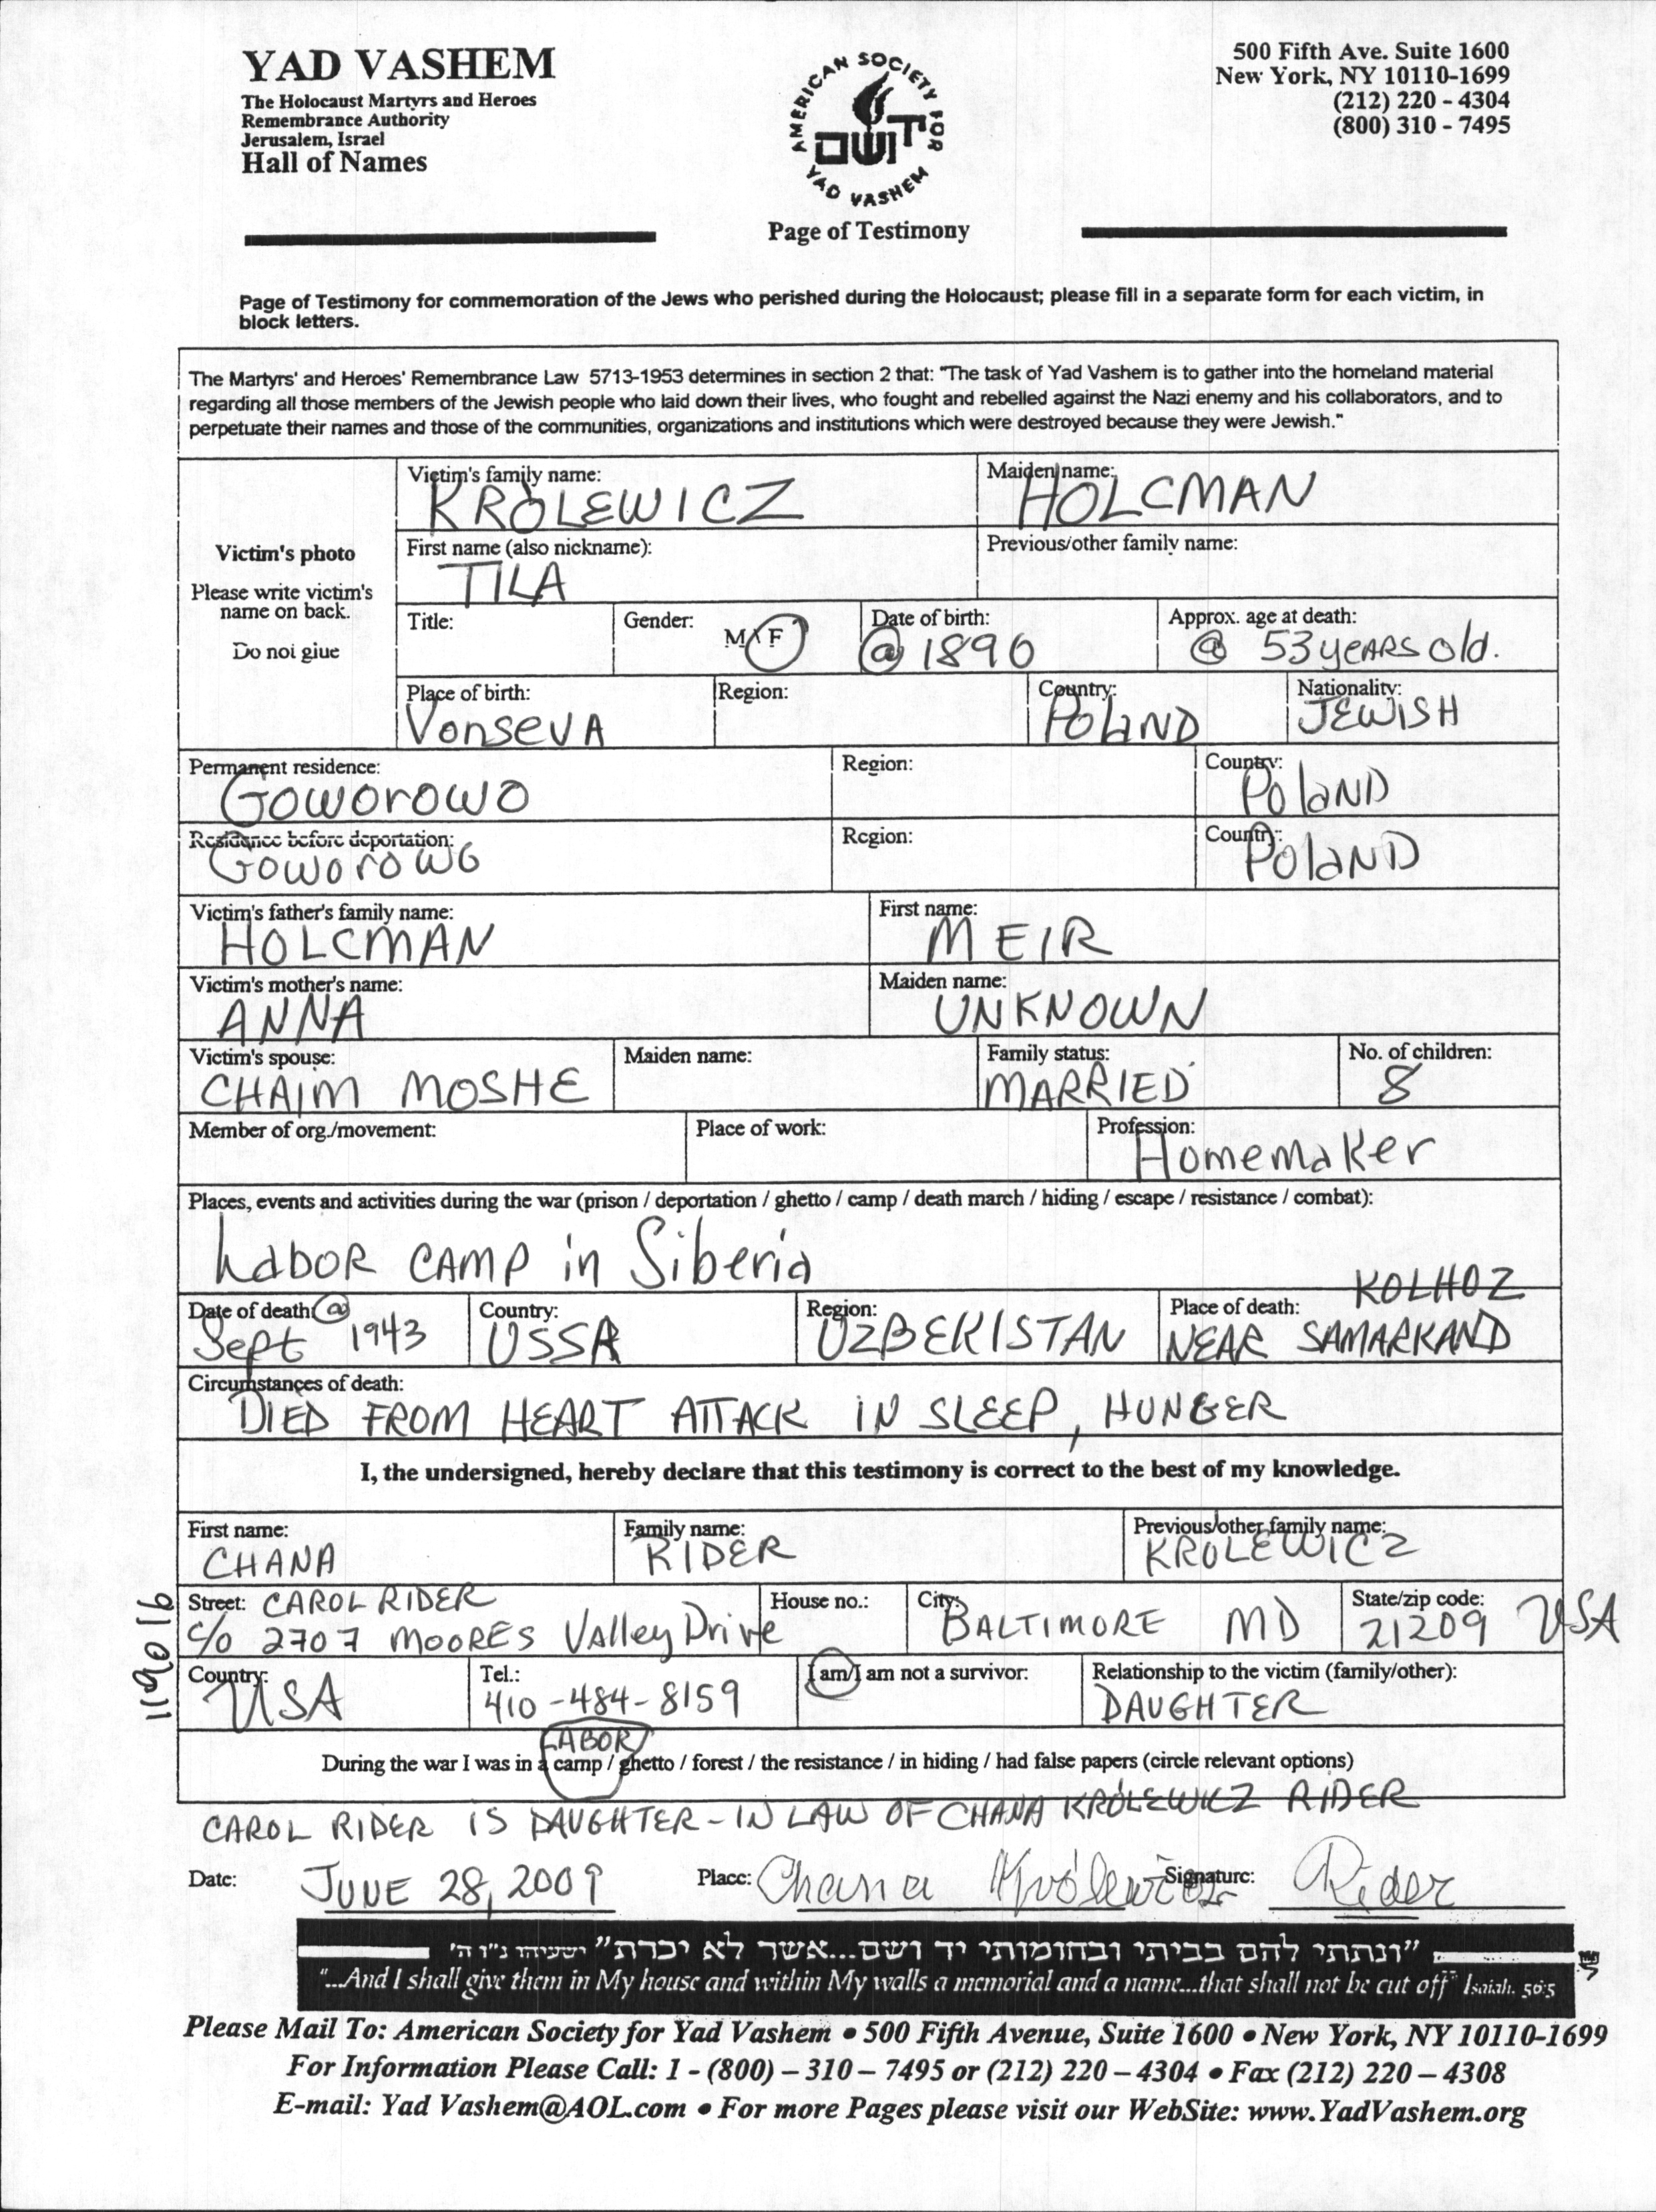 YAD VASHEM
The Holocaust Martyrs and Heroes
Remembrance Authority
Jerusalem, Israel
Hall of Names
AMERICAN SOCIETY FOR
יד ושם
YAD VASHEM
Page of Testimony
500 Fifth Ave. Suite 1600
New York, NY 10110-1699
(212) 220 - 4304
(800) 310 - 7495
Page of Testimony for commemoration of the Jews who perished during the Holocaust; please fill in a separate form for each victim, in
block letters.
The Martyrs' and Heroes' Remembrance Law 5713-1953 determines in section 2 that: "The task of Yad Vashem is to gather into the homeland material
regarding all those members of the Jewish people who laid down their lives, who fought and rebelled against the Nazi enemy and his collaborators, and to
perpetuate their names and those of the communities, organizations and institutions which were destroyed because they were Jewish."
Victim's photo
Please write victim's
name on back.
Do not glue
Victim's family name: Maiden name:
KRÓLEWICZ HOLCMAN
First name (also nickname): Previous/other family name:
TILA
Title: Gender: M/F Date of birth: Approx. age at death:
@ 1890 @ 53 yEARS Old.
Place of birth: Region: Country: Nationality:
VonseVA PolAND JEWISH
Permanent residence: Region: Country:
Goworowo PolaND
Residence before deportation: Region: Country:
Goworowo PolaND
Victim's father's family name: First name:
HOLCMAN MEIR
Victim's mother's name: Maiden name:
ANNA UNKNOWN
Victim's spouse: Maiden name: Family status: No. of children:
CHAIM MOSHE MARRIED 8
Member of org./movement: Place of work: Profession:
Homemaker
Places, events and activities during the war (prison / deportation / ghetto / camp / death march / hiding / escape / resistance / combat):
LaboR CAMP in Siberia
KOLHOZ
Date of death: @ Country: Region: Place of death:
Sept 1943 USSR UZBEKISTAN NEAR SAMARKAND
Circumstances of death:
DIED FROM HEART ATTACK IN SLEEP, HUNGER
I, the undersigned, hereby declare that this testimony is correct to the best of my knowledge.
First name: Family name: Previous/other family name:
CHANA RIDER KROLEWICZ
Street: CAROL RIDER House no.: City: State/zip code:
c/o 2707 MOORES Valley Drive BALTIMORE MD 21209 USA
Country: Tel.: I am/I am not a survivor: Relationship to the victim (family/other):
USA 410-484-8159 DAUGHTER
LABOR
During the war I was in a camp / ghetto / forest / the resistance / in hiding / had false papers (circle relevant options)
CAROL RIDER IS DAUGHTER-IN LAW OF CHANA KRÓLEWICZ RIDER
Date: JUNE 28, 2009 Place: Chana Królewicz Signature: Rider
"ונתתי להם בביתי ובחומותי יד ושם...אשר לא יכרת" ישעיהו נ"ו ה'
"...And I shall give them in My house and within My walls a memorial and a name...that shall not be cut off" Isaiah. 56:5
Please Mail To: American Society for Yad Vashem • 500 Fifth Avenue, Suite 1600 • New York, NY 10110-1699
For Information Please Call: 1 - (800) – 310 – 7495 or (212) 220 – 4304 • Fax (212) 220 – 4308
E-mail: Yad Vashem@AOL.com • For more Pages please visit our WebSite: www.YadVashem.org